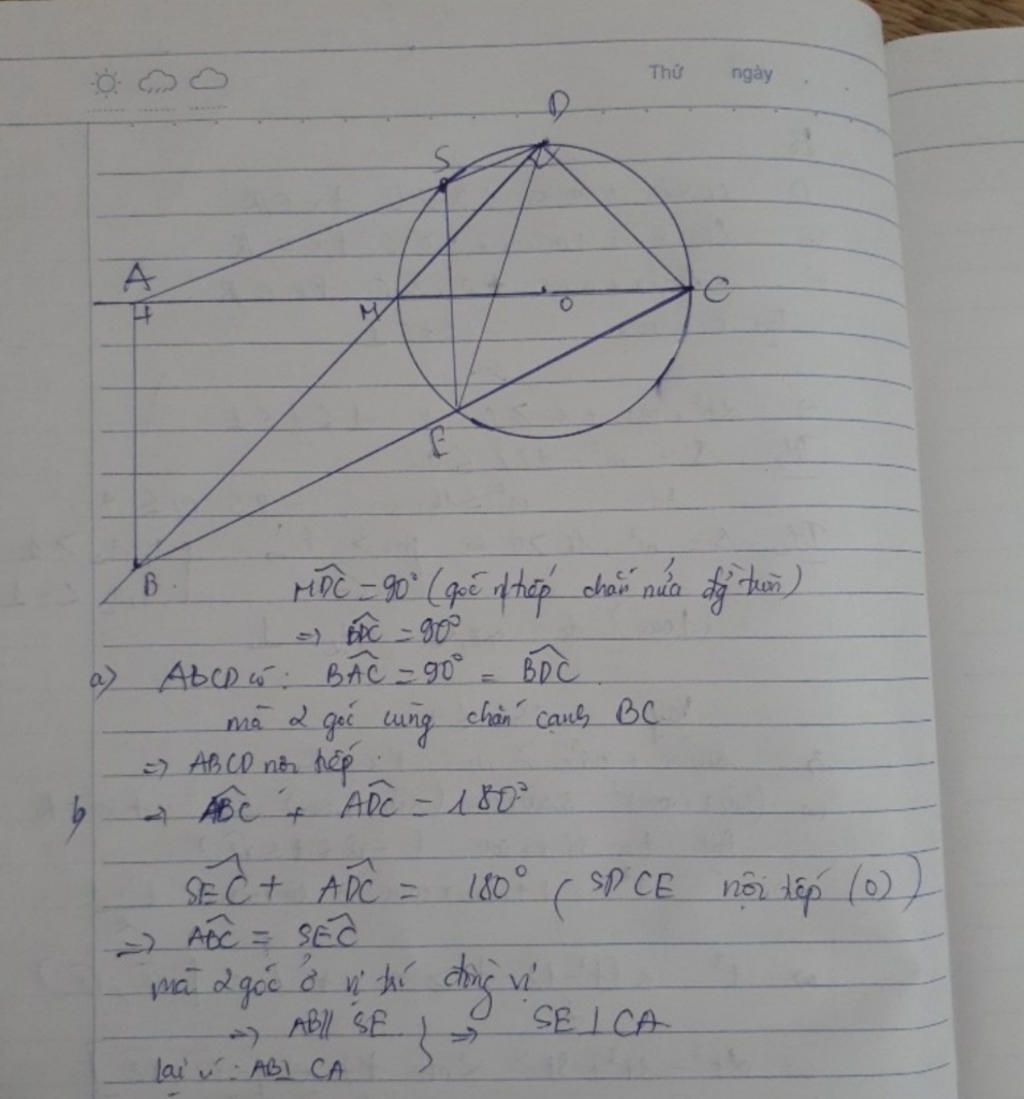 Thứ ngày
D
S
A
M O C
E
B
MDC = 90° (góc n/tiếp chắn nửa đg tròn)
=> BDC = 90°
a) ABCD có: BAC = 90° = BDC
mà 2 góc cùng chắn cạnh BC
=> ABCD nội tiếp.
b) => ABC + ADC = 180°
SEC + ADC = 180° (SDCE nội tiếp (O))
=> ABC = SEC
mà 2 góc ở vị trí đồng vị
=> AB // SE } => SE ⊥ CA
lại có: AB ⊥ CA